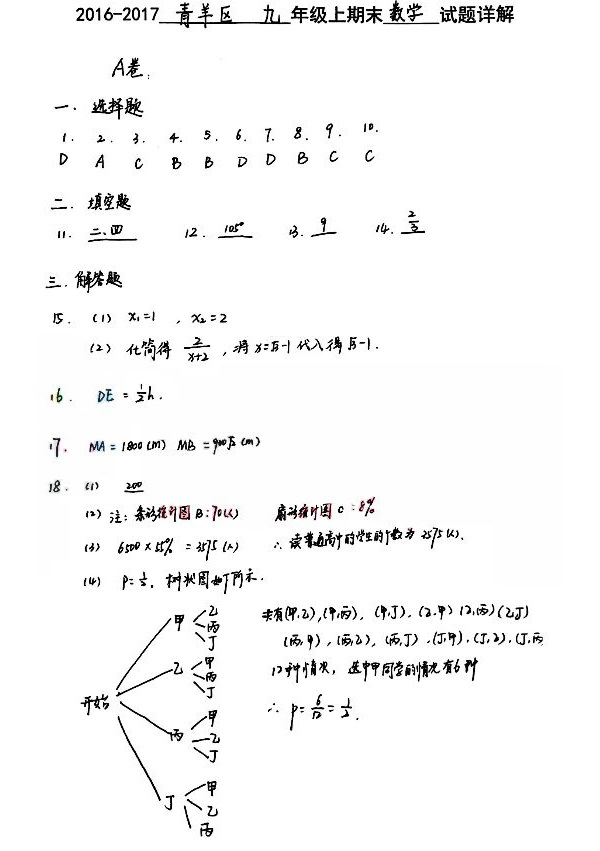 2016-2017 青羊区 九 年级上期末 数学 试题详解
A卷:
一. 选择题
1. 2. 3. 4. 5. 6. 7. 8. 9. 10.
D A C B B D D B C C
二. 填空题
11. 二、四 12. 105° 13. 9 14. 2/3
三. 解答题
15. (1) x₁=1 , x₂=2
(2) 化简得 2/(x+2) , 将 x=√5-1 代入得
16. DE = 1/2 h.
17. MA = 1800 (m) MB = 900√2 (m)
18. (1) 200
(2) 注: 条形统计图 B: 70(人) 扇形统计图 C: 8%
(3) 6500 × 55% = 3575 (人) ∴ 读普通高中的学生的个数为 3575 (人).
(4) P=1/2, 树状图如下所示.
开始
甲 乙 丙 丁
乙 甲 丙 丁
丙 甲 乙 丁
丁 甲 乙 丙
共有(甲,乙),(甲,丙), (甲,丁), (乙,甲) (乙,丙) (乙,丁)
(丙,甲), (丙,乙), (丙,丁), (丁,甲), (丁,乙), (丁,丙
12种情况, 选中甲同学的情况有6种
∴ P= 6/12 = 1/2.